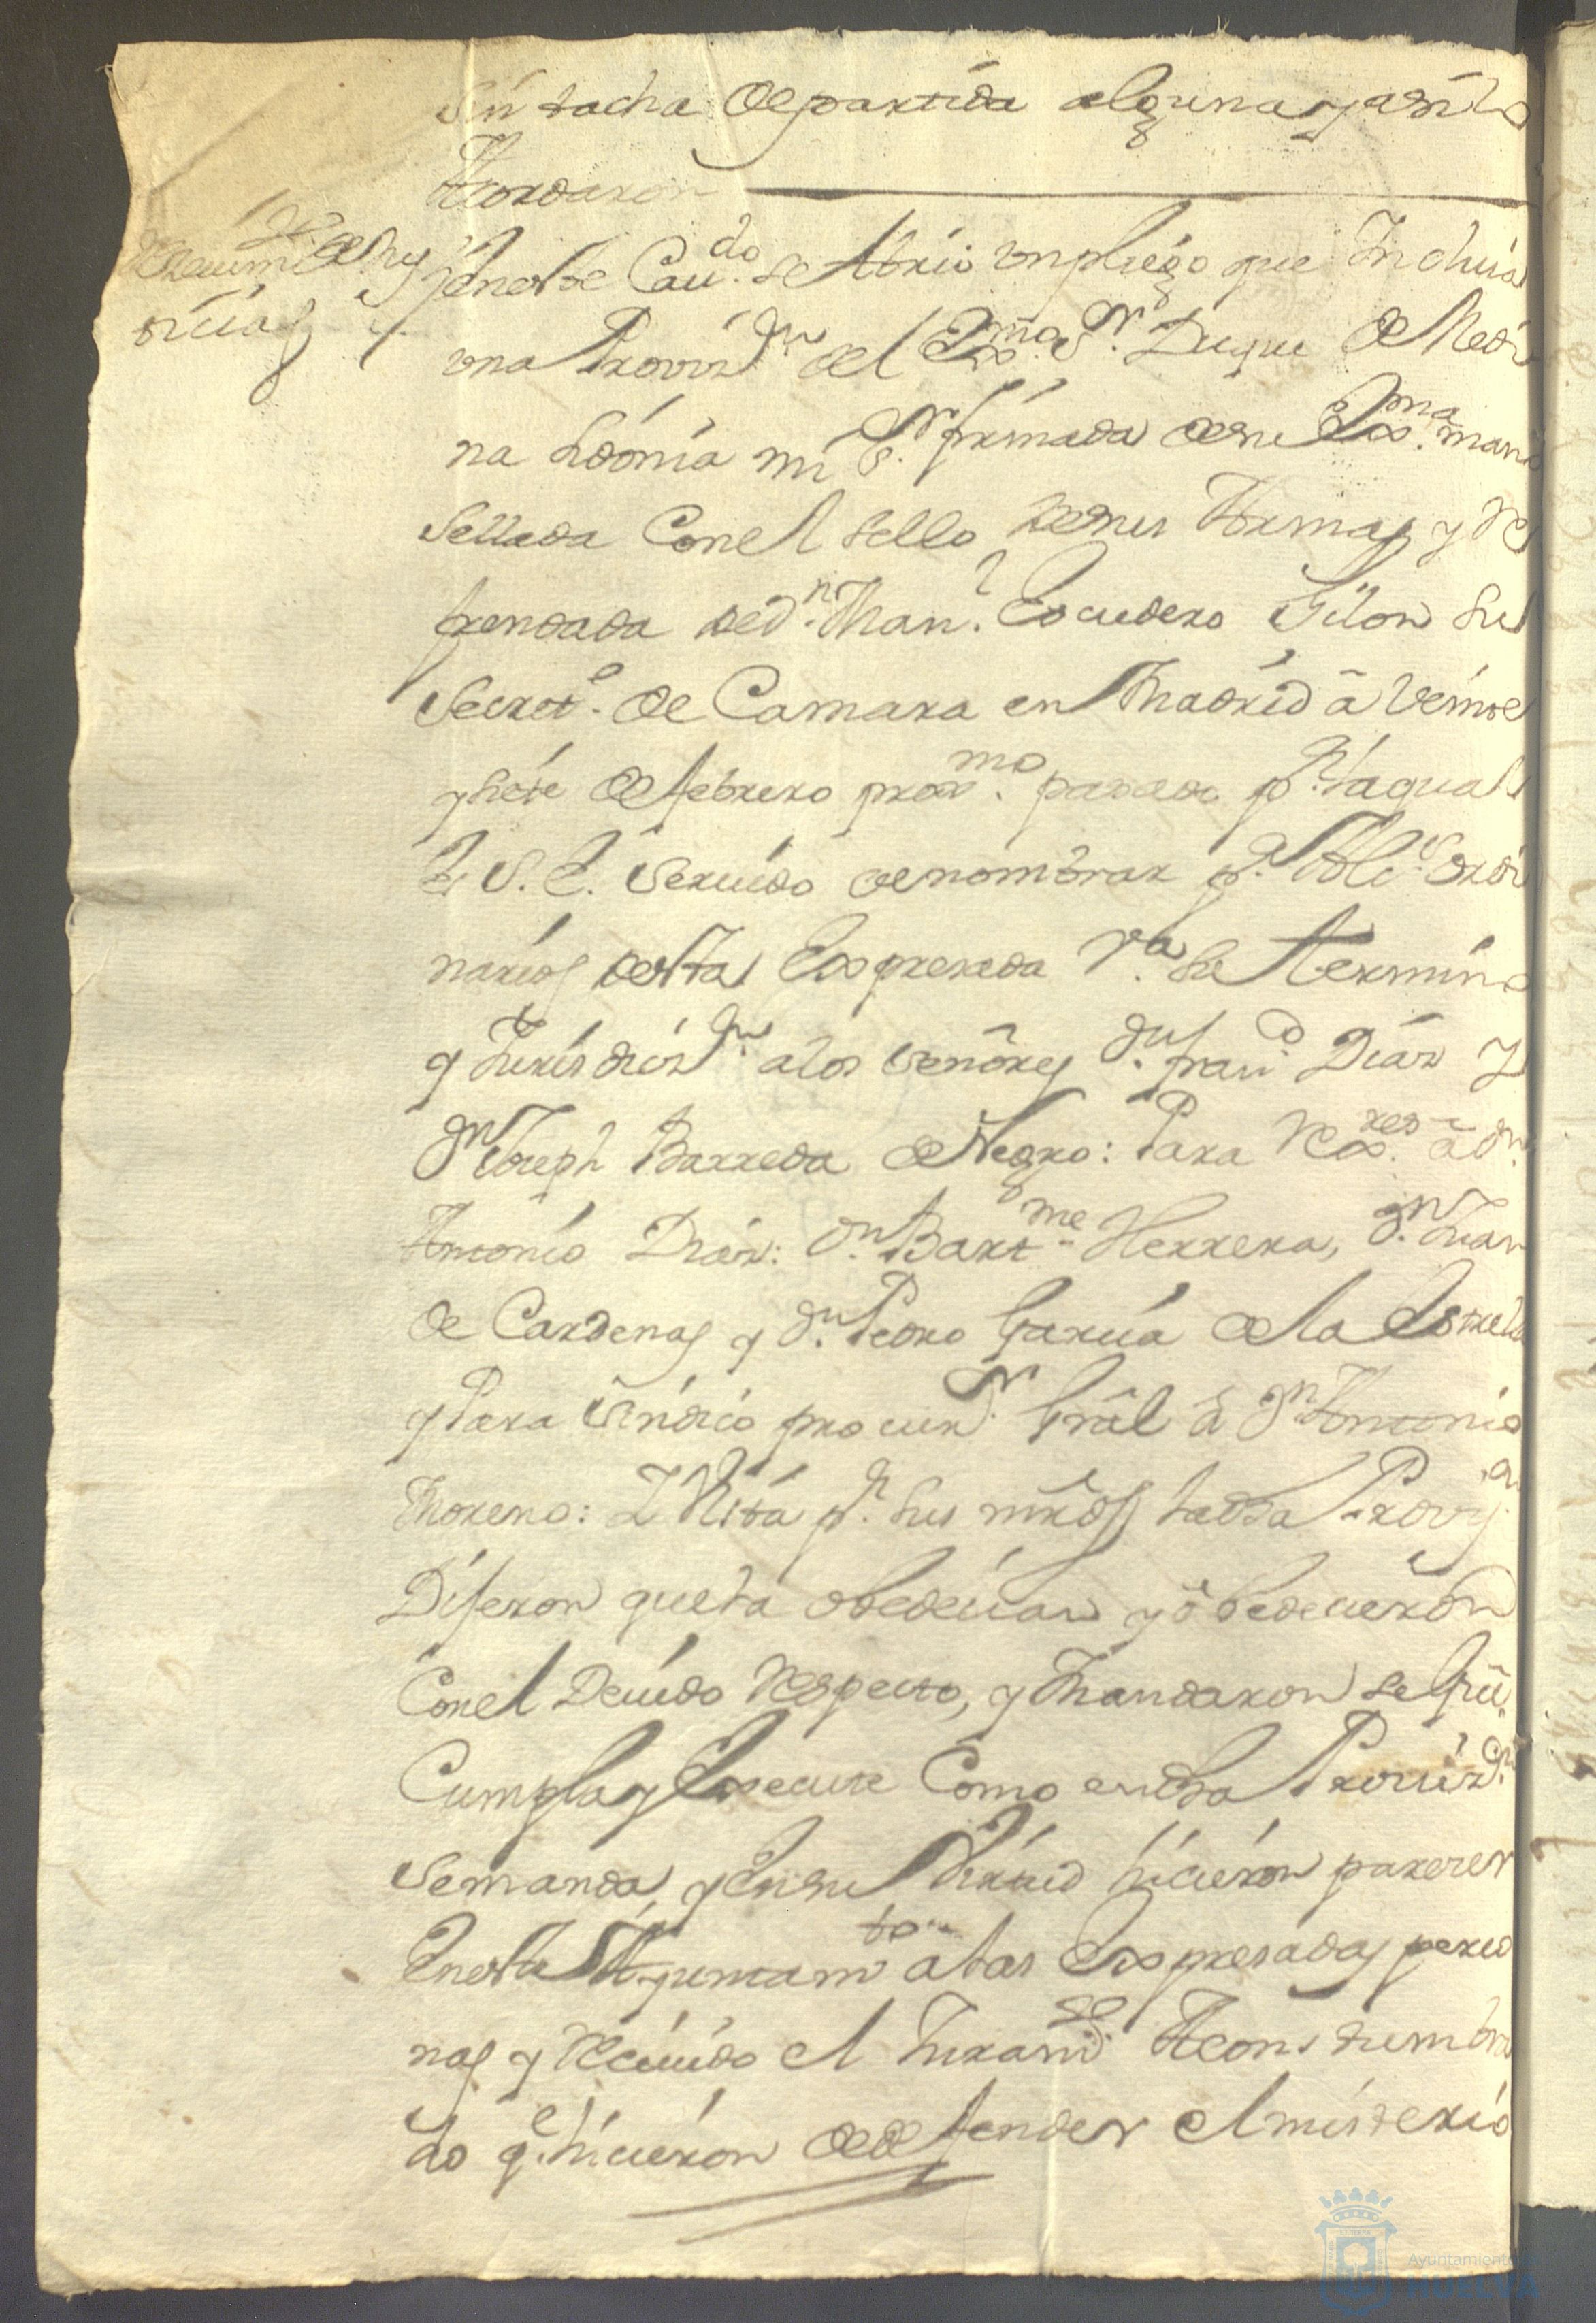 sin tacha de partida alguna y asi lo
Acordaron
Reciumto de Jus
ticias
En este Cau.do se Abrio un pliego que Incluia
una Provis.n del Exmo. S.r Duque de Medi
na Sidonia mi S.r firmada de su Exma. mano
Sellada Con el Sello de sus Armas y Re
frendada de d.n Man.l Escudero Gilon su
Secret.o de Camara en Madrid â Veinte
y siete de febrero proxmo. pasado p.r la qual
Es S. E. Servido de nombrar p.a Alc.s Ordi
narios desta Expresada V.a su termino
y Jurisdiz.n a los señores d.n Fran.co Diaz Y
d.n Joseph Barreda de Negro: Para Rex.res â d.n
Antonio Diaz: d.n Bart.me Herrera, d.n Juan
de Cardenas y d.n Pedro Garcia de la Estrella
y Para Sindico procur.r Grâl â d.n Antonio
Moreno: Y Vista p.r sus mrds la dha Provis.n
Dijeron que la obedecian y obedecieron
Con el Devido Respecto, y Mandaron se Gûe.
Cumpla y Execute Como en dha Proviz.n
se manda, y En su Virtud hicieron parecer
En este Ayuntam.to â las Expresadas perso
nas y Recivido el Juram.to Acostumbra
do q.e hicieron de defender el misterio
Ayuntamiento de
HUELVA